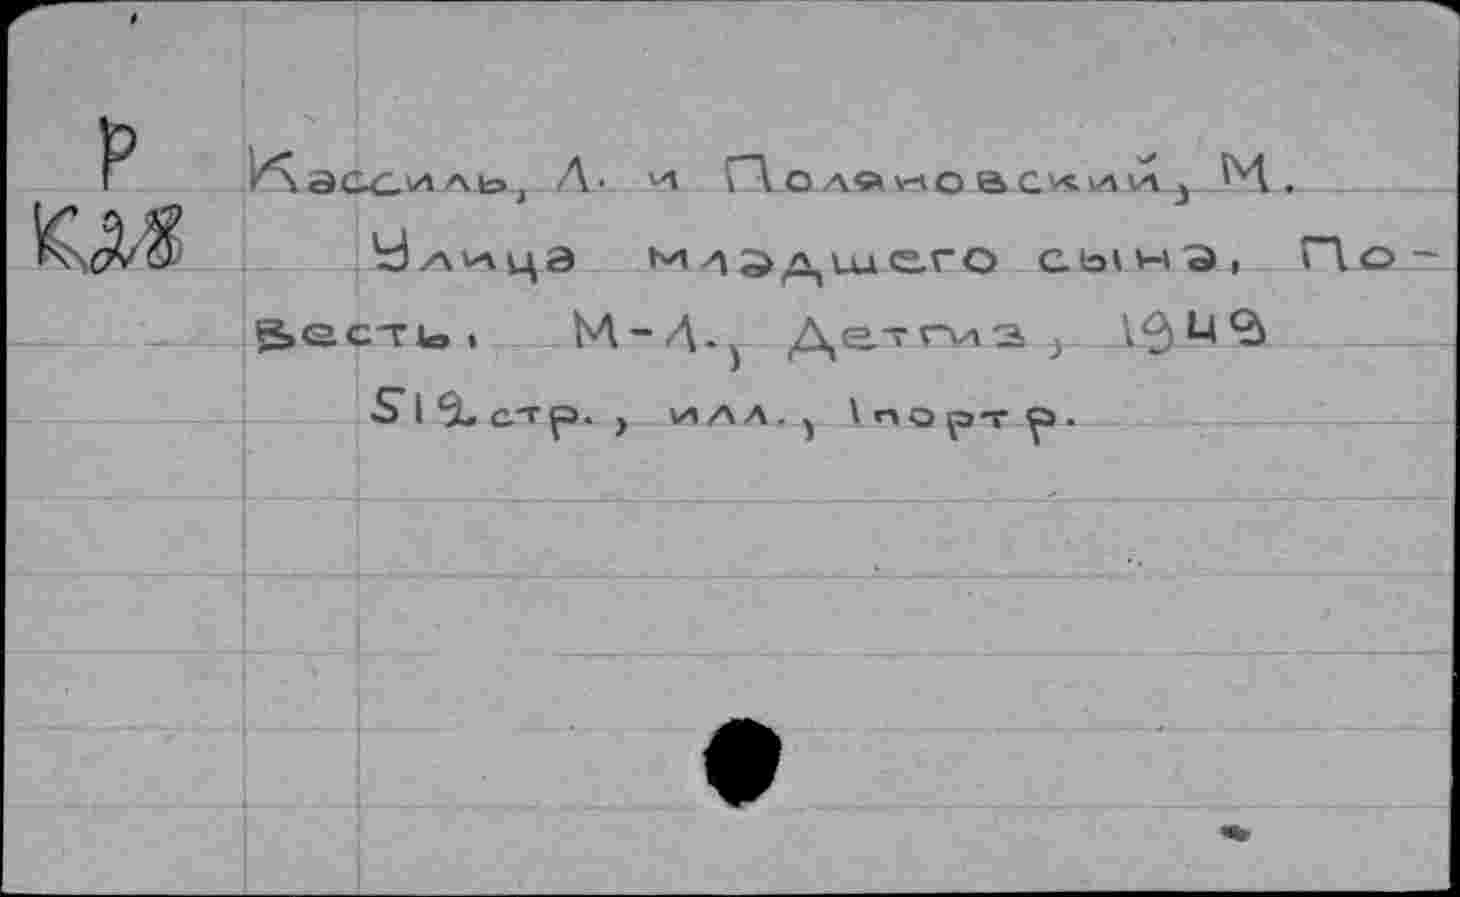 Р Кассиль, Л. и Поляновский, М.
Улица младшего сына, По-
весть, М-Л., Детгиз, 1949
512 стр., илл., 1 портр.